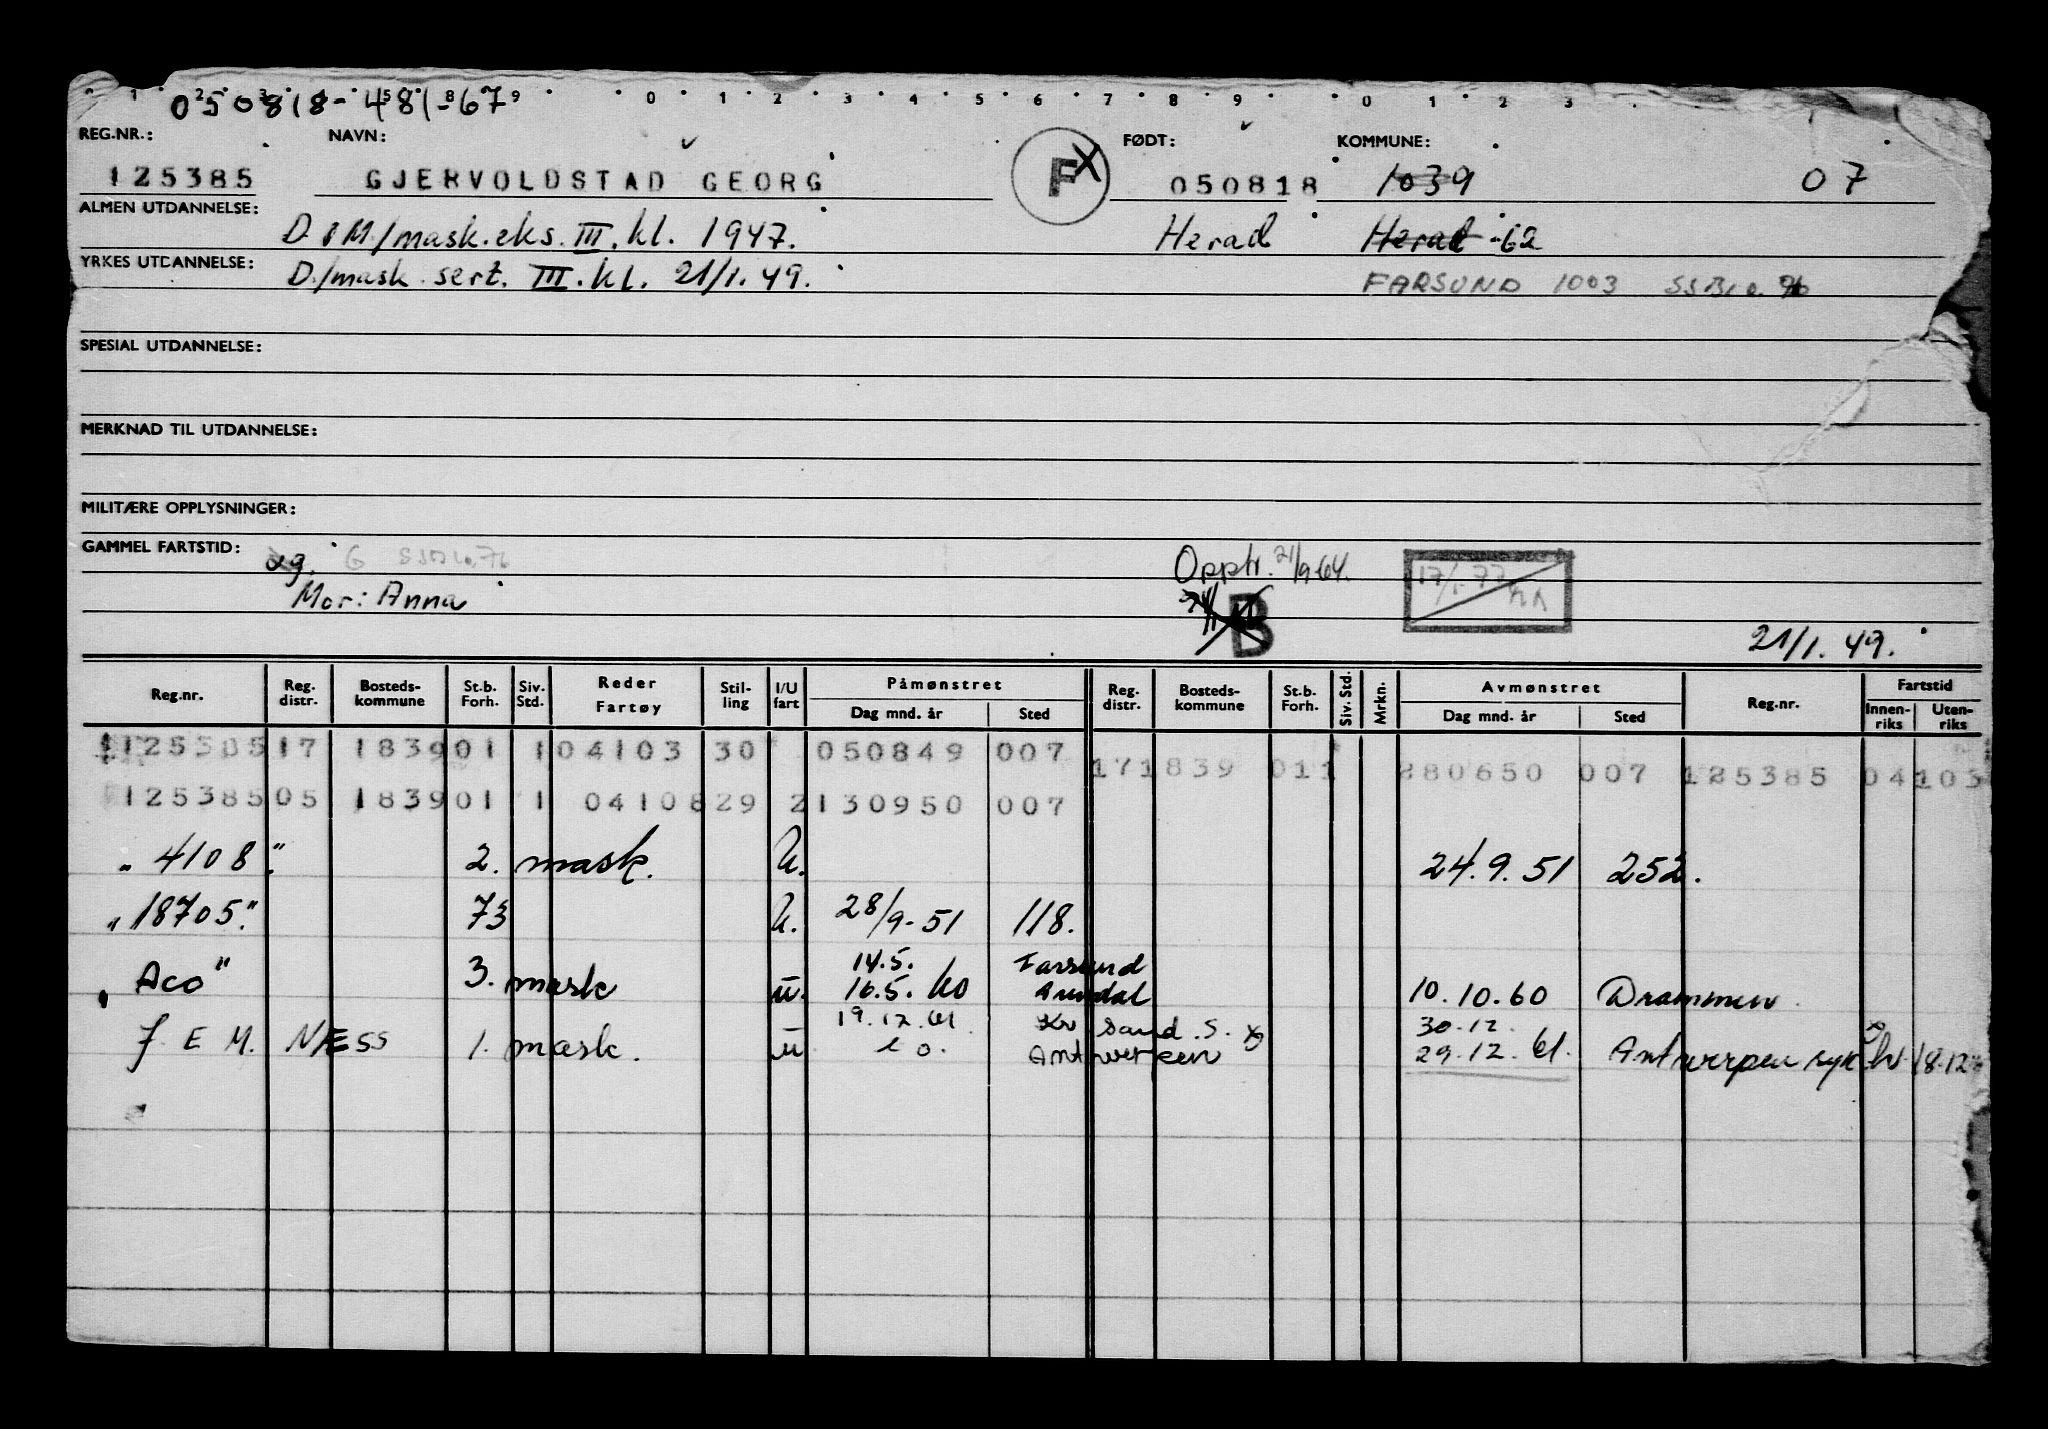 050818-481-67
REG.NR.: NAVN: FØDT: KOMMUNE:
125385 GJERVOLDSTAD GEORG F X 050818 1039 07
ALMEN UTDANNELSE: D. & M./mask.eks. III. kl. 1947. Herad Herad -62
YRKES UTDANNELSE: D./mask. sert. III. kl. 21/1. 49. FARSUND 1003
SPESIAL UTDANNELSE:
MERKNAD TIL UTDANNELSE:
MILITÆRE OPPLYSNINGER:
GAMMEL FARTSTID: ug. G Opptr. 21/9 64. 17/1.77
Mor: Anna B
21/1. 49.
Reg.nr. Reg. distr. Bosteds-kommune St.b. Forh. Siv. Std. Reder Fartøy Stil-ling I/U fart Påmønstret Dag mnd. år Sted Reg. distr. Bosteds-kommune St.b. Forh. Siv. Std. Mrkn. Avmønstret Dag mnd. år Sted Reg.nr. Fartstid Innen-riks Uten-riks
125385 17 1839 01 1 04103 30 050849 007
171839 011 280650 007 125385 04103
125385 05 1839 01 1 04108 29 2 130950 007
"4108". 2. mask. U. 24.9.51 252.
"18705." 73 U. 28/9-51 118.
14.5. Farsund
"Aco" 3. mask u. 16.5.60 Arendal 10.10.60 Drammen.
19.12.61. Kr sand. S. 30.12.
J. E. M. NÆSS 1. mask. u Antwerpen 29.12.61. Antwerpen syk 18.12